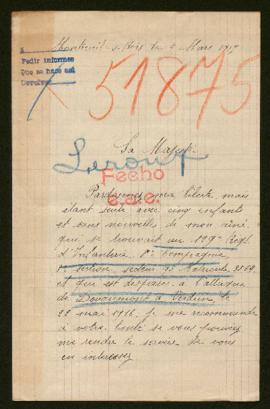 Montreuil s/Bois le 4 Mars 1917
Pedir informes
Que se hace así
51875
Sa Majesté
Leroux
Fecho
Pardonnez ma liberté, mais
étant seule avec cinq enfants
et sans nouvelle de mon
qui se trouvait au 129e Regt
d'Infanterie Compagnie
section Matricule
et que est disparu à l'attaque
de Douaumont à Verdun, le
22 mai 1916. Je me recommande
à votre bonté si vous pouviez
me rendre le service de vous
en intéressez